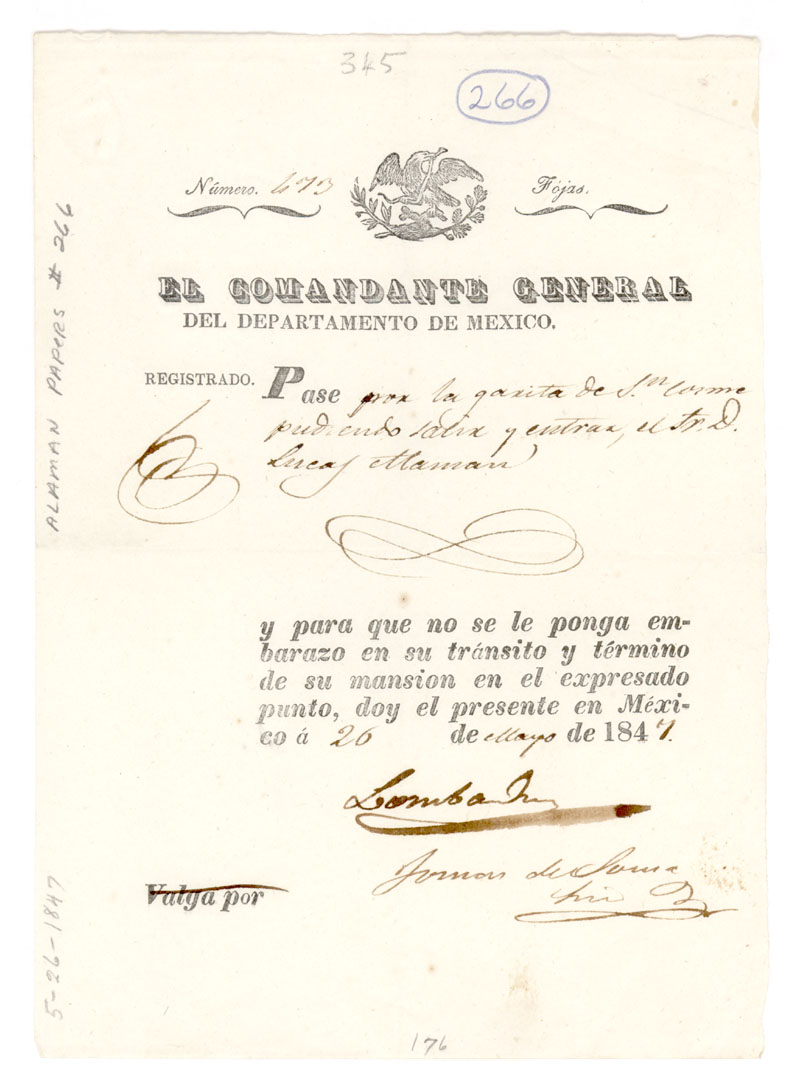 345
266
Número. 473 Fójas.
EL COMANDANTE GENERAL
DEL DEPARTAMENTO DE MEXICO.
REGISTRADO. Pase por la garita de S.n Cosme
pudiendo salir y entrar, el Sr. D.
Lucas Alaman
y para que no se le ponga em-
barazo en su tránsito y término
de su mansion en el expresado
punto, doy el presente en Méxi-
co á 26 de Mayo de 1847.
Lombardini
Valga por
176
ALAMAN PAPERS # 266
5-26-1847